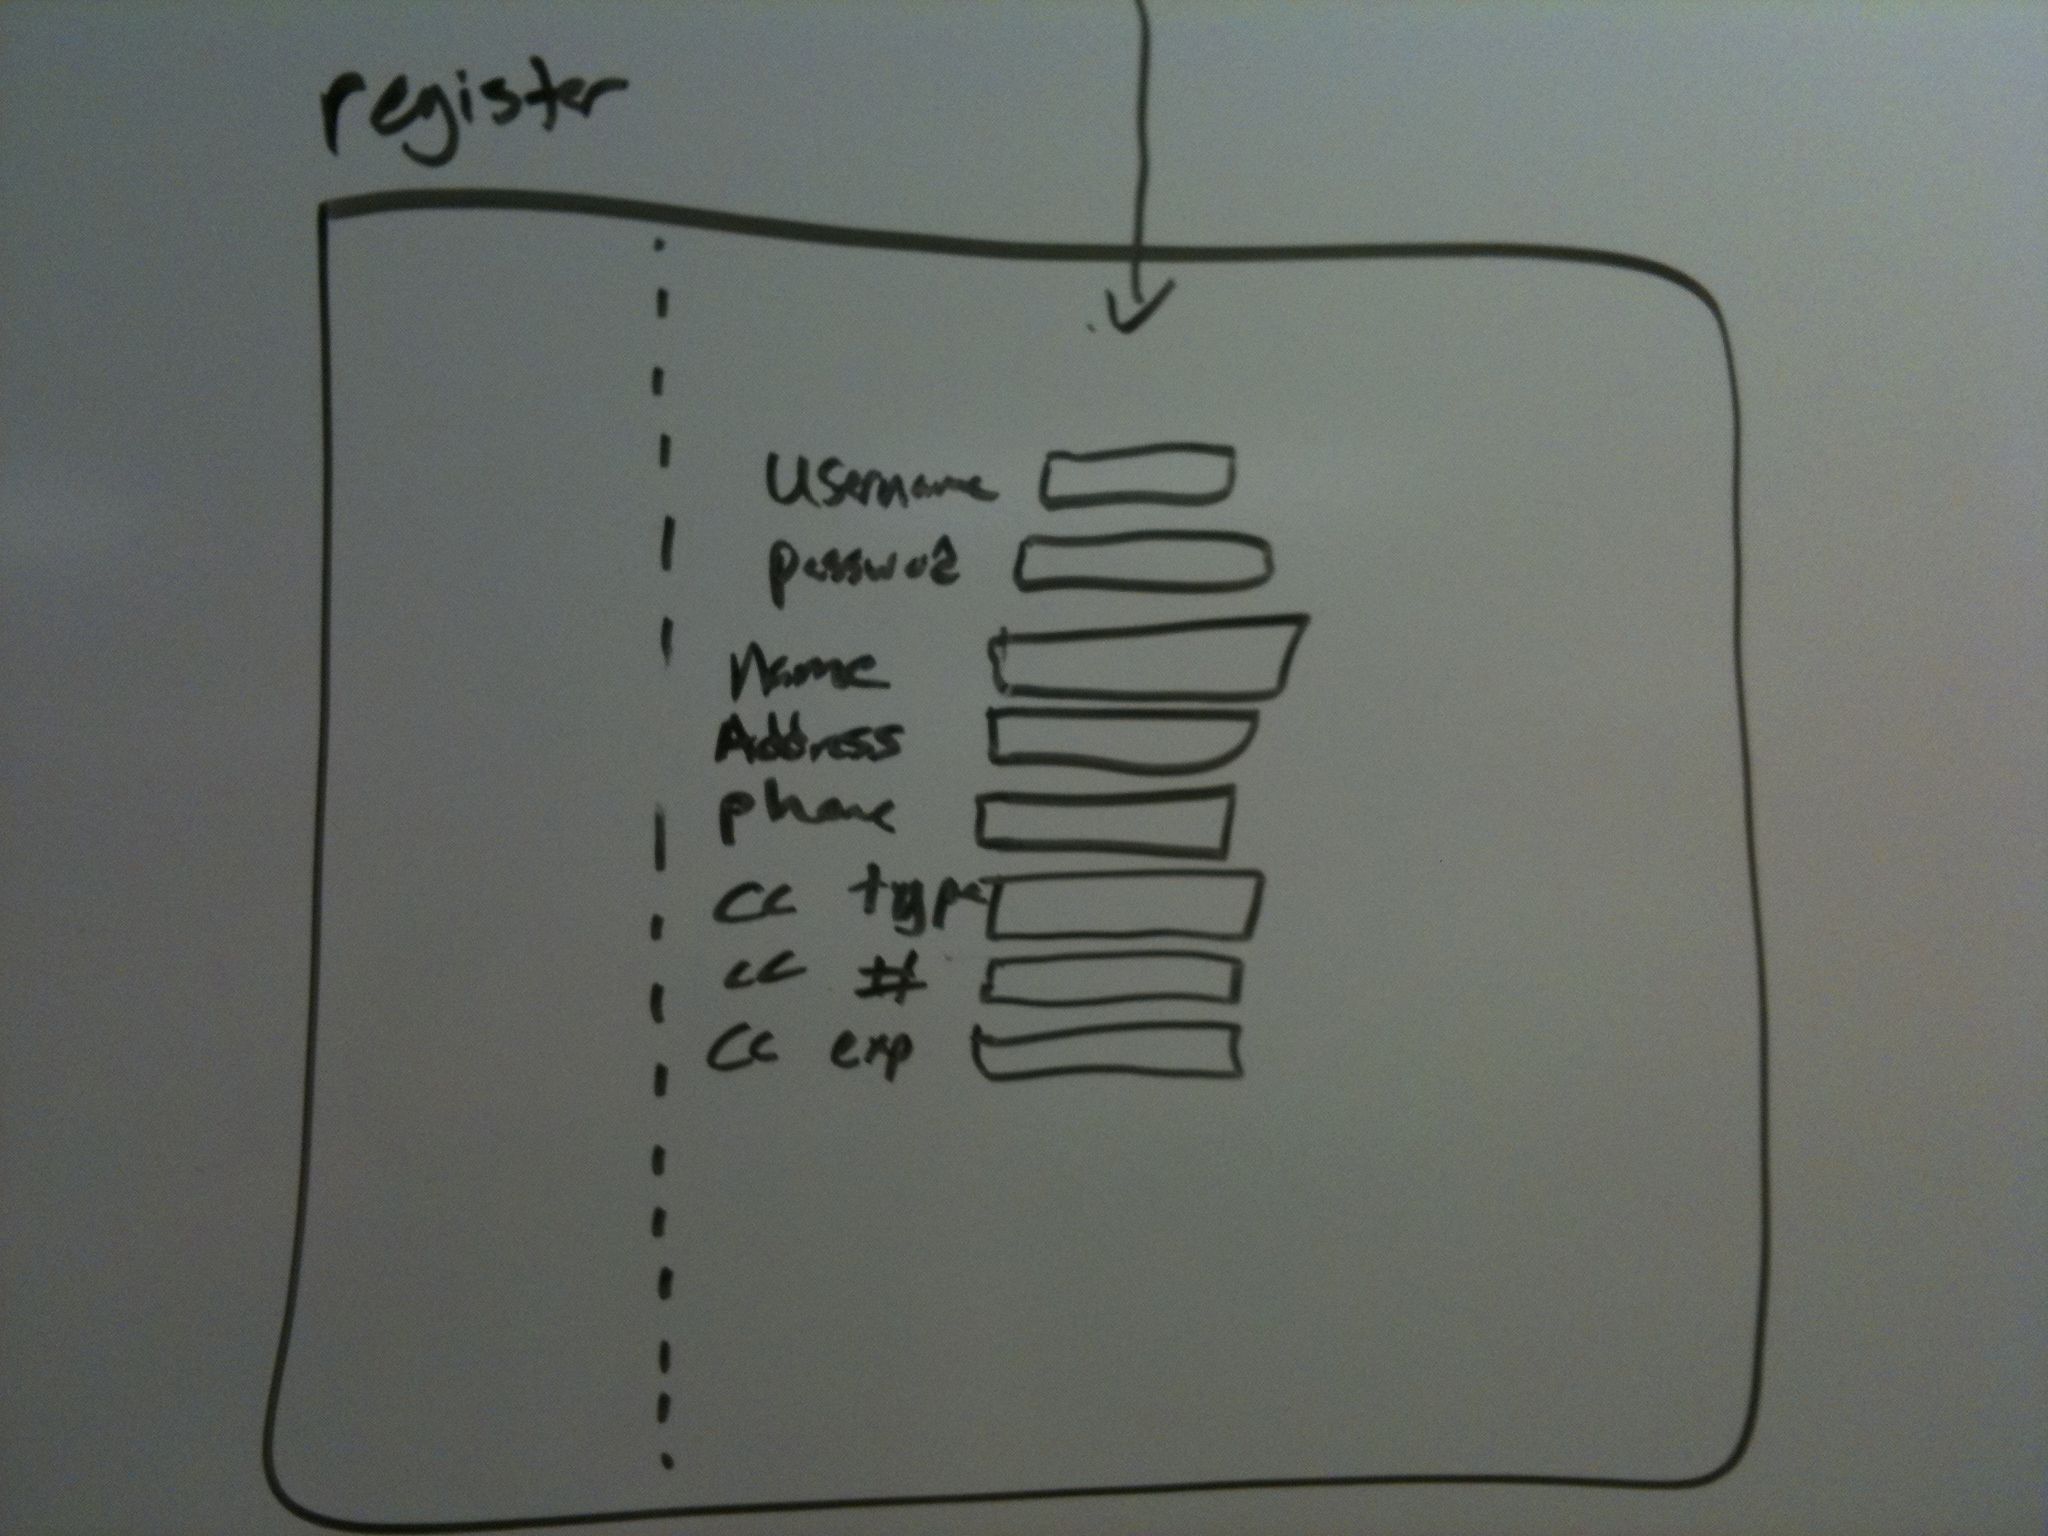 register
Username
password
Name
Address
phone
CC type
CC #
CC exp